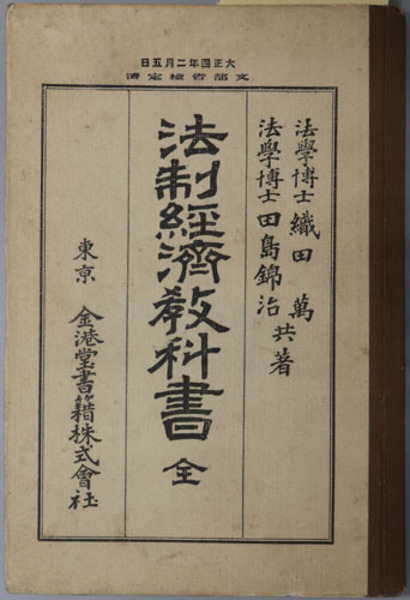 大正四年二月五日
文部省檢定濟
法學博士 織田 萬
法學博士 田島錦治
共著
法制經濟教科書 全
東京 金港堂書籍株式會社